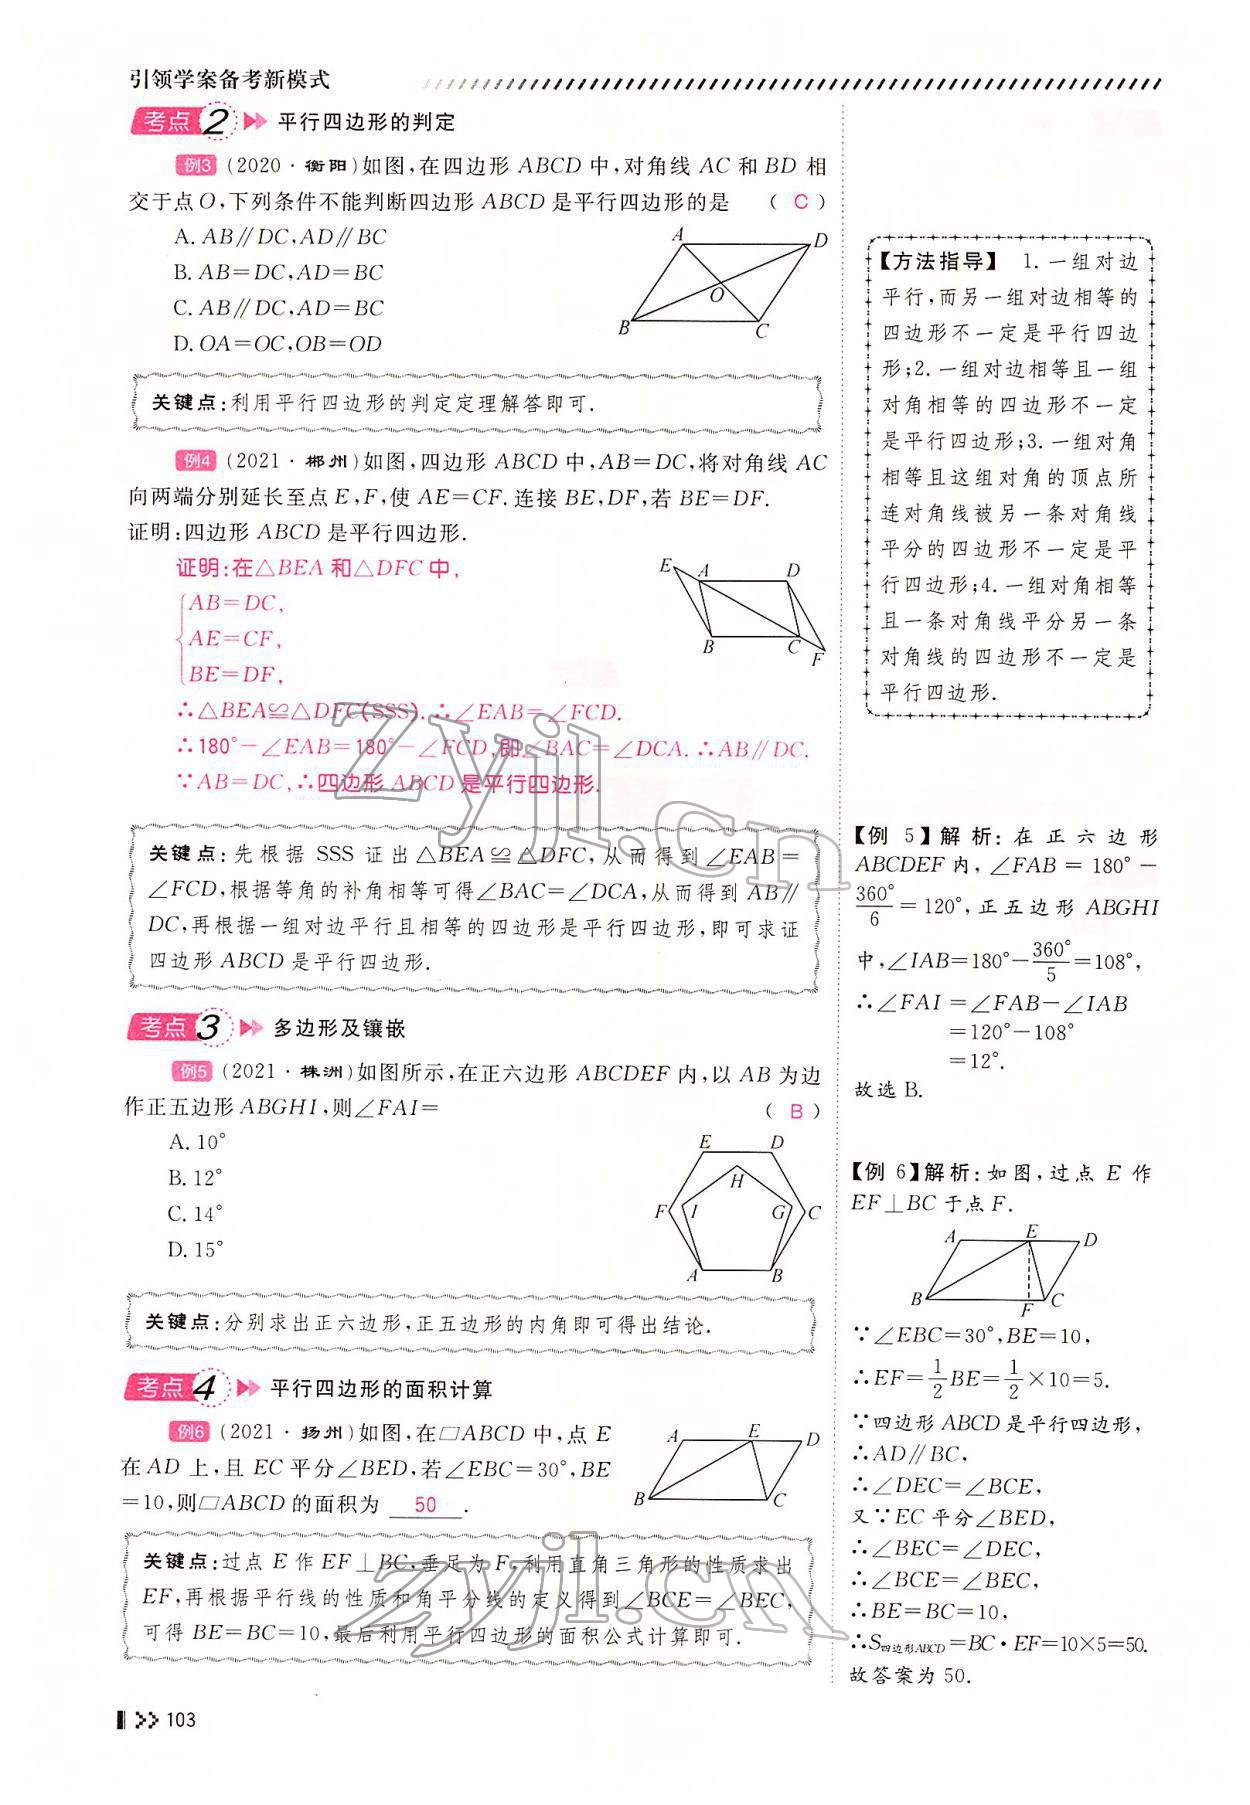 引领学案备考新模式
考点2 平行四边形的判定
例3 (2020·衡阳)如图,在四边形 ABCD 中,对角线 AC 和 BD 相
交于点O,下列条件不能判断四边形 ABCD 是平行四边形的是 ( C )
A. AB∥DC,AD∥BC
B. AB=DC,AD=BC
C. AB∥DC,AD=BC
D. OA=OC,OB=OD
A D
O
B C
关键点:利用平行四边形的判定定理解答即可.
例4 (2021·郴州)如图,四边形 ABCD 中,AB=DC,将对角线 AC
向两端分别延长至点 E,F,使 AE=CF.连接 BE,DF,若 BE=DF.
证明:四边形 ABCD 是平行四边形.
证明:在△BEA 和△DFC 中,
AB=DC,
AE=CF,
BE=DF,
∴△BEA≌△DFC(SSS).∴∠EAB=∠FCD.
∴180°-∠EAB=180°-∠FCD,即∠BAC=∠DCA.∴AB∥DC.
∵AB=DC,∴四边形 ABCD 是平行四边形.
E A D
B C F
关键点:先根据 SSS 证出△BEA≌△DFC,从而得到∠EAB=
∠FCD,根据等角的补角相等可得∠BAC=∠DCA,从而得到 AB∥
DC,再根据一组对边平行且相等的四边形是平行四边形,即可求证
四边形 ABCD 是平行四边形.
考点3 多边形及镶嵌
例5 (2021·株洲)如图所示,在正六边形 ABCDEF 内,以 AB 为边
作正五边形 ABGHI,则∠FAI= ( B )
A. 10°
B. 12°
C. 14°
D. 15°
E D
H
F I G C
A B
关键点:分别求出正六边形,正五边形的内角即可得出结论.
考点4 平行四边形的面积计算
例6 (2021·扬州)如图,在▱ABCD 中,点 E
在 AD 上,且 EC 平分∠BED,若∠EBC=30°,BE
=10,则▱ABCD 的面积为 50 .
A E D
B C
关键点:过点 E 作 EF⊥BC,垂足为 F,利用直角三角形的性质求出
EF,再根据平行线的性质和角平分线的定义得到∠BCE=∠BEC,
可得 BE=BC=10,最后利用平行四边形的面积公式计算即可.
103
【方法指导】 1.一组对边
平行,而另一组对边相等的
四边形不一定是平行四边
形;2.一组对边相等且一组
对角相等的四边形不一定
是平行四边形;3.一组对角
相等且这组对角的顶点所
连对角线被另一条对角线
平分的四边形不一定是平
行四边形;4.一组对角相等
且一条对角线平分另一条
对角线的四边形不一定是
平行四边形.
【例 5】解析:在正六边形
ABCDEF 内,∠FAB=180°-
360°/6=120°,正五边形 ABGHI
中,∠IAB=180°-360°/5=108°,
∴∠FAI=∠FAB-∠IAB
=120°-108°
=12°.
故选 B.
【例 6】解析:如图,过点 E 作
EF⊥BC 于点 F.
A E D
B F C
∵∠EBC=30°,BE=10,
∴EF=1/2BE=1/2×10=5.
∵四边形 ABCD 是平行四边形,
∴AD∥BC,
∴∠DEC=∠BCE,
又∵EC 平分∠BED,
∴∠BEC=∠DEC,
∴∠BCE=∠BEC,
∴BE=BC=10,
∴S四边形ABCD=BC·EF=10×5=50.
故答案为 50.
zyjl.cn
zyjl.cn